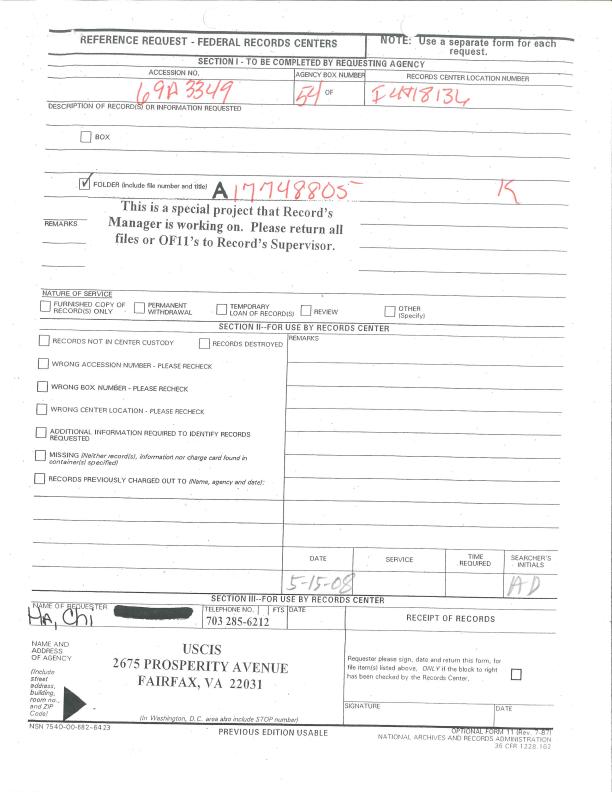 REFERENCE REQUEST - FEDERAL RECORDS CENTERS
NOTE: Use a separate form for each request.
SECTION I - TO BE COMPLETED BY REQUESTING AGENCY
ACCESSION NO.
69A3349
AGENCY BOX NUMBER
54 OF
RECORDS CENTER LOCATION NUMBER
DESCRIPTION OF RECORD(S) OR INFORMATION REQUESTED
BOX
FOLDER (Include file number and title) A17748805 K
This is a special project that Record's
Manager is working on. Please return all
files or OF11's to Record's Supervisor.
REMARKS
NATURE OF SERVICE
FURNISHED COPY OF RECORD(S) ONLY
PERMANENT WITHDRAWAL
TEMPORARY LOAN OF RECORD(S)
REVIEW
OTHER (Specify)
SECTION II--FOR USE BY RECORDS CENTER
RECORDS NOT IN CENTER CUSTODY
RECORDS DESTROYED
REMARKS
WRONG ACCESSION NUMBER - PLEASE RECHECK
WRONG BOX NUMBER - PLEASE RECHECK
WRONG CENTER LOCATION - PLEASE RECHECK
ADDITIONAL INFORMATION REQUIRED TO IDENTIFY RECORDS
REQUESTED
MISSING (Neither record(s), information nor charge card found in
container(s) specified)
RECORDS PREVIOUSLY CHARGED OUT TO (Name, agency and date):
DATE
SERVICE
TIME REQUIRED
SEARCHER'S INITIALS
5-15-08
AD
SECTION III--FOR USE BY RECORDS CENTER
NAME OF REQUESTER
Ha, Chi
TELEPHONE NO. FTS
703 285-6212
DATE
RECEIPT OF RECORDS
NAME AND
ADDRESS
OF AGENCY
(Include
street
address,
building,
room no.,
and ZIP
Code)
USCIS
2675 PROSPERITY AVENUE
FAIRFAX, VA 22031
(In Washington, D.C. area also include STOP number)
Requester please sign, date and return this form, for
file item(s) listed above, ONLY if the block to right
has been checked by the Records Center.
SIGNATURE
DATE
NSN 7540-00-682-6423
PREVIOUS EDITION USABLE
OPTIONAL FORM 11 (Rev. 7-87)
NATIONAL ARCHIVES AND RECORDS ADMINISTRATION
36 CFR 1228.162